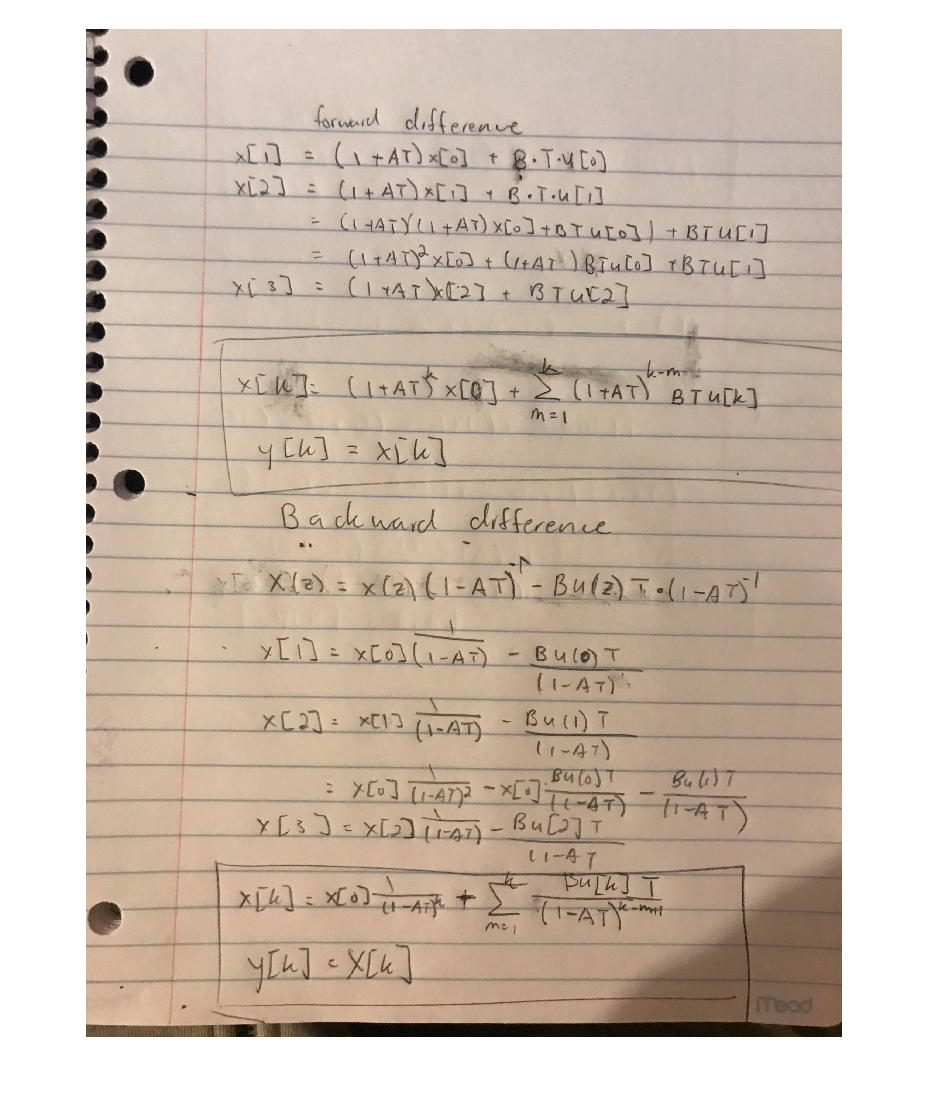 forward difference
x[1] = (1+AT)x[0] + B·T·u[0]
x[2] = (1+AT)x[1] + B·T·u[1]
= (1+AT)(1+AT)x[0]+BTu[0]) + BTu[1]
= (1+AT)²x[0] + (1+AT)BTu[0] + BTu[1]
x[3] = (1+AT)x[2] + BTu[2]
x[k] = (1+AT)^k x[0] + Σ_{m=1}^{k} (1+AT)^{k-m} BTu[k]
y[k] = x[k]
Backward difference
X(z) = x(z)(1-AT)^{-1} - Bu(z)T·(1-AT)^{-1}
x[1] = x[0] 1/(1-AT) - Bu(0)T/(1-AT)
x[2] = x[1] 1/(1-AT) - Bu(1)T/(1-AT)
= x[0] 1/(1-AT)² - x[0]·Bu(0)T/(1-AT) - Bu(1)T/(1-AT)
x[3] = x[2] 1/(1-AT) - Bu[2]T/(1-AT
x[k] = x[0] 1/(1-AT)^k + Σ_{m=1}^{k} Bu[k]T/(1-AT)^{k-m+1}
y[k] = X[k]
Mead